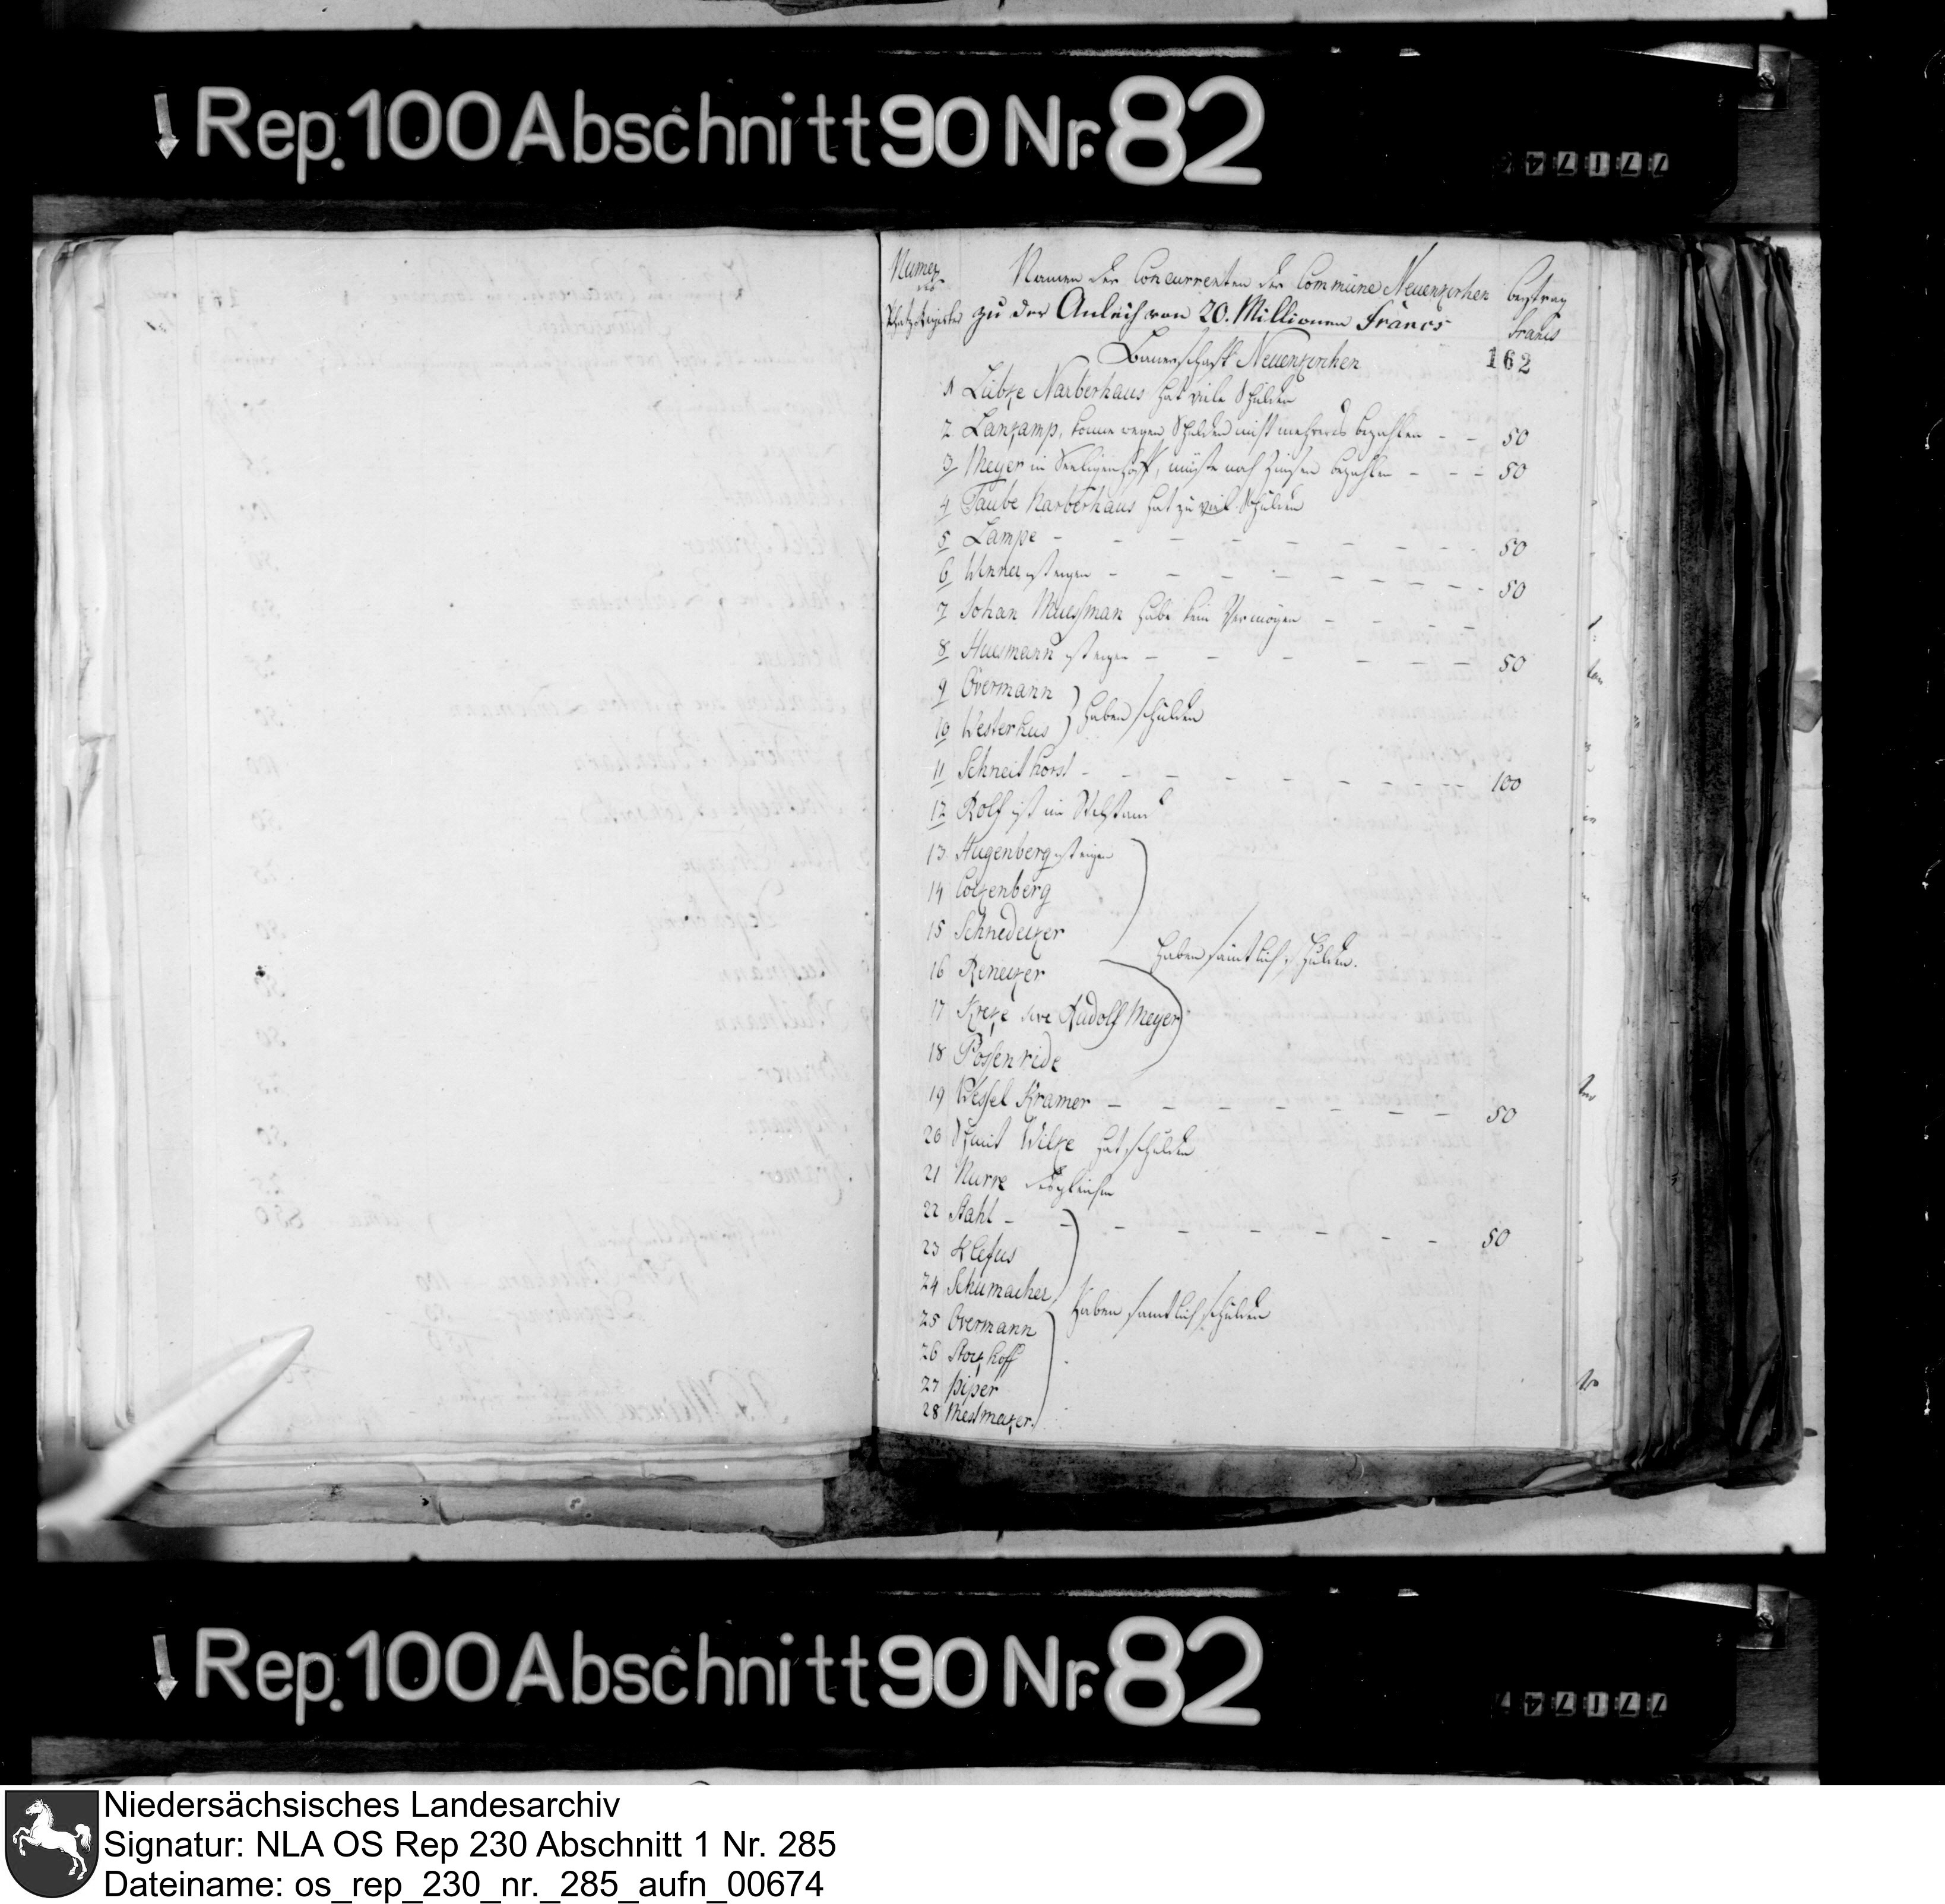 Rep. 100 Abschnitt 90 Nr. 82
Numer
des
Schatz Registers
Namen der Concurrenten der Commüne Neuenkirchen
zu der Anleih von 20. Millionen francs
beytrag
francs
162
Bauerschaft Neuenkirchen
1 Lübke Narberhaus hat viele Schulden
2 Lankamp, könne wegen Schulden nicht mehreres bezahlen - - 50
3 Meyer in Seeligenhoff, müste noch Zinsen bezahlen - - - 50
4 Taube Narberhaus hat zu viel Schulden
5 Lampe - - - - - - - - 50
6 Wenner ist eigen - - - - - - - - 50
7 Johan Muesman habe kein Vermögen - - - -
8 Huesmann ist eigen - - - - - - 50
9 Overmann
10 Westerhus
haben schulden
11 Schneithorst - - - - - - - - 100
12 Rolf ist im Stilstand
13 Hugenberg ist eigen
14 Colkenberg
15 Schnedeker
16 Reneker
haben sämtlich schulden.
17 Kreke sive Rudolf Meyer
18 Possenride
19 Wessel Kramer - - - - - - - 50
20 Schmit Wilke hat schulden
21 Nurre desgleichen
22 Stahl - - - - - - - - 50
23 Klefus
24 Schumacher
haben samtlich schulden
25 Overmann
26 Storkhoff
27 Piper
28 Mesmaker
Rep. 100 Abschnitt 90 Nr. 82
Niedersächsisches Landesarchiv
Signatur: NLA OS Rep 230 Abschnitt 1 Nr. 285
Dateiname: os_rep_230_nr._285_aufn_00674